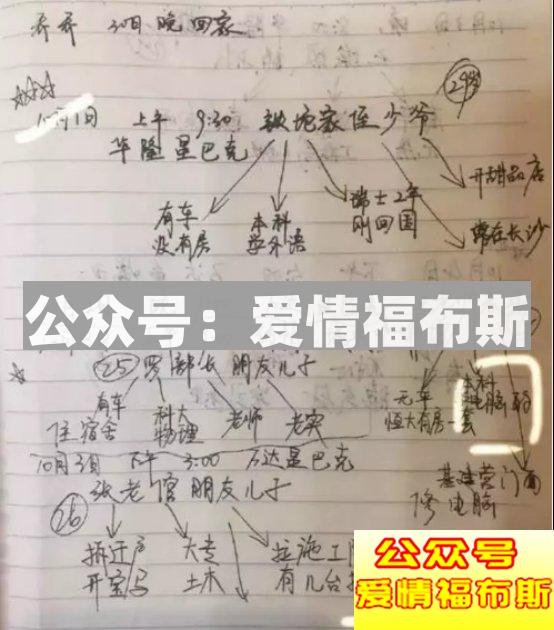 乔乔 30日晚回家
29岁
10月1日 上午 9:30 铁坨家侄少爷
华隆星巴克
开甜品店
瑞士2年
刚回国
有车
没有房
本科
学外语
常在长沙
公众号：爱情福布斯
25 罗部长 朋友儿子
有车
住宿舍
科大
物理
老师
老实
无车
恒大有房一套
本科
基建营门面
修电脑
10月3日 下午 3:00 万达星巴克
26
张老官朋友儿子
拆迁户
开宝马
大专
土木
拉施工队
有几台
公众号
爱情福布斯